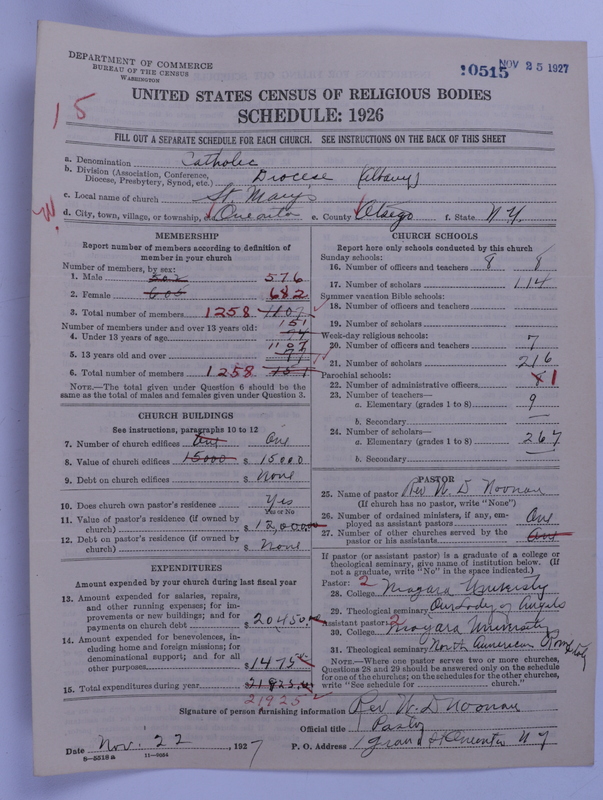 DEPARTMENT OF COMMERCE
BUREAU OF THE CENSUS
WASHINGTON
10515 NOV 25 1927
15
UNITED STATES CENSUS OF RELIGIOUS BODIES
SCHEDULE: 1926
FILL OUT A SEPARATE SCHEDULE FOR EACH CHURCH. SEE INSTRUCTIONS ON THE BACK OF THIS SHEET
a. Denomination Catholic
b. Division (Association, Conference, Diocese, Presbytery, Synod, etc.) Diocese (Albany)
c. Local name of church St. Mary's
W.
d. City, town, village, or township, Oneonta e. County Otsego f. State N.Y.
MEMBERSHIP
Report number of members according to definition of
member in your church
Number of members, by sex:
1. Male 502 576
2. Female 605 682
3. Total number of members 1258 1107
Number of members under and over 13 years old:
4. Under 13 years of age 151
5. 13 years old and over 1107
6. Total number of members 1258 151
NOTE.—The total given under Question 6 should be the
same as the total of males and females given under Question 3.
CHURCH BUILDINGS
See instructions, paragraphs 10 to 12
7. Number of church edifices One One
8. Value of church edifices 15000 $ 15000
9. Debt on church edifices $ None
10. Does church own pastor's residence? Yes
Yes or No
11. Value of pastor's residence (if owned by
church) $ 12,000.00
12. Debt on pastor's residence (if owned by
church) $ None
EXPENDITURES
Amount expended by your church during last fiscal year
13. Amount expended for salaries, repairs,
and other running expenses; for im-
provements or new buildings; and for
payments on church debt $ 20450.00
14. Amount expended for benevolences, in-
cluding home and foreign missions; for
denominational support; and for all
other purposes $ 1475
15. Total expenditures during year $ 21925.00
21925
CHURCH SCHOOLS
Report here only schools conducted by this church
Sunday schools:
16. Number of officers and teachers 8 8
17. Number of scholars 114
Summer vacation Bible schools:
18. Number of officers and teachers
19. Number of scholars
Week-day religious schools:
20. Number of officers and teachers 7
21. Number of scholars 216
Parochial schools:
22. Number of administrative officers 1
23. Number of teachers—
a. Elementary (grades 1 to 8) 9
b. Secondary —
24. Number of scholars—
a. Elementary (grades 1 to 8) 267
b. Secondary —
PASTOR
25. Name of pastor Rev W. D. Noonan
(If church has no pastor, write "None")
26. Number of ordained ministers, if any, em-
ployed as assistant pastors One
27. Number of other churches served by the
pastor or his assistants One
If pastor (or assistant pastor) is a graduate of a college or
theological seminary, give name of institution below. (If
not a graduate, write "No" in the space indicated.)
Pastor: 2
28. College Niagara University
29. Theological seminary Our Lady of Angels
Assistant pastor: 2
30. College Niagara University
31. Theological seminary North American Rome Italy
NOTE.—Where one pastor serves two or more churches,
Questions 28 and 29 should be answered only on the schedule
for one of the churches; on the schedules for the other churches,
write "See schedule for church."
Signature of person furnishing information Rev W. D Noonan
Official title Pastor
Date Nov. 22, 1927 P. O. Address Grand St Oneonta N Y
8—5518a 11—9054